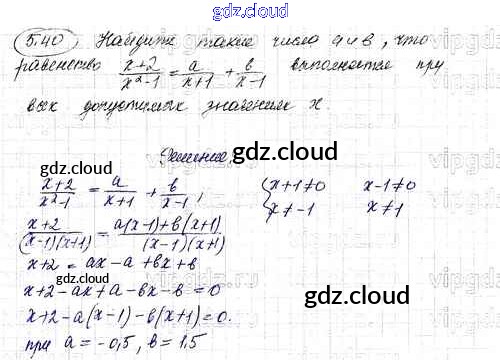 gdz.cloud
5.40. Найдите такие числа a и в, что
равенство \frac{x+2}{x²-1} = \frac{a}{x+1} + \frac{в}{x-1} выполняется при
всех допустимых значениях x.
gdz.cloud
Решение
gdz.cloud
\frac{x+2}{x²-1} = \frac{a}{x+1} + \frac{в}{x-1}, { x+1≠0 x-1≠0
x≠-1 x≠1
\frac{x+2}{(x-1)(x+1)} = \frac{a(x-1)+в(x+1)}{(x-1)(x+1)}
gdz.cloud
x+2 = ax-a+вx+в
x+2-ax+a-вx-в=0
x+2-a(x-1)-в(x+1)=0.
gdz.cloud
при a=-0,5, в=1,5
gdz.cloud